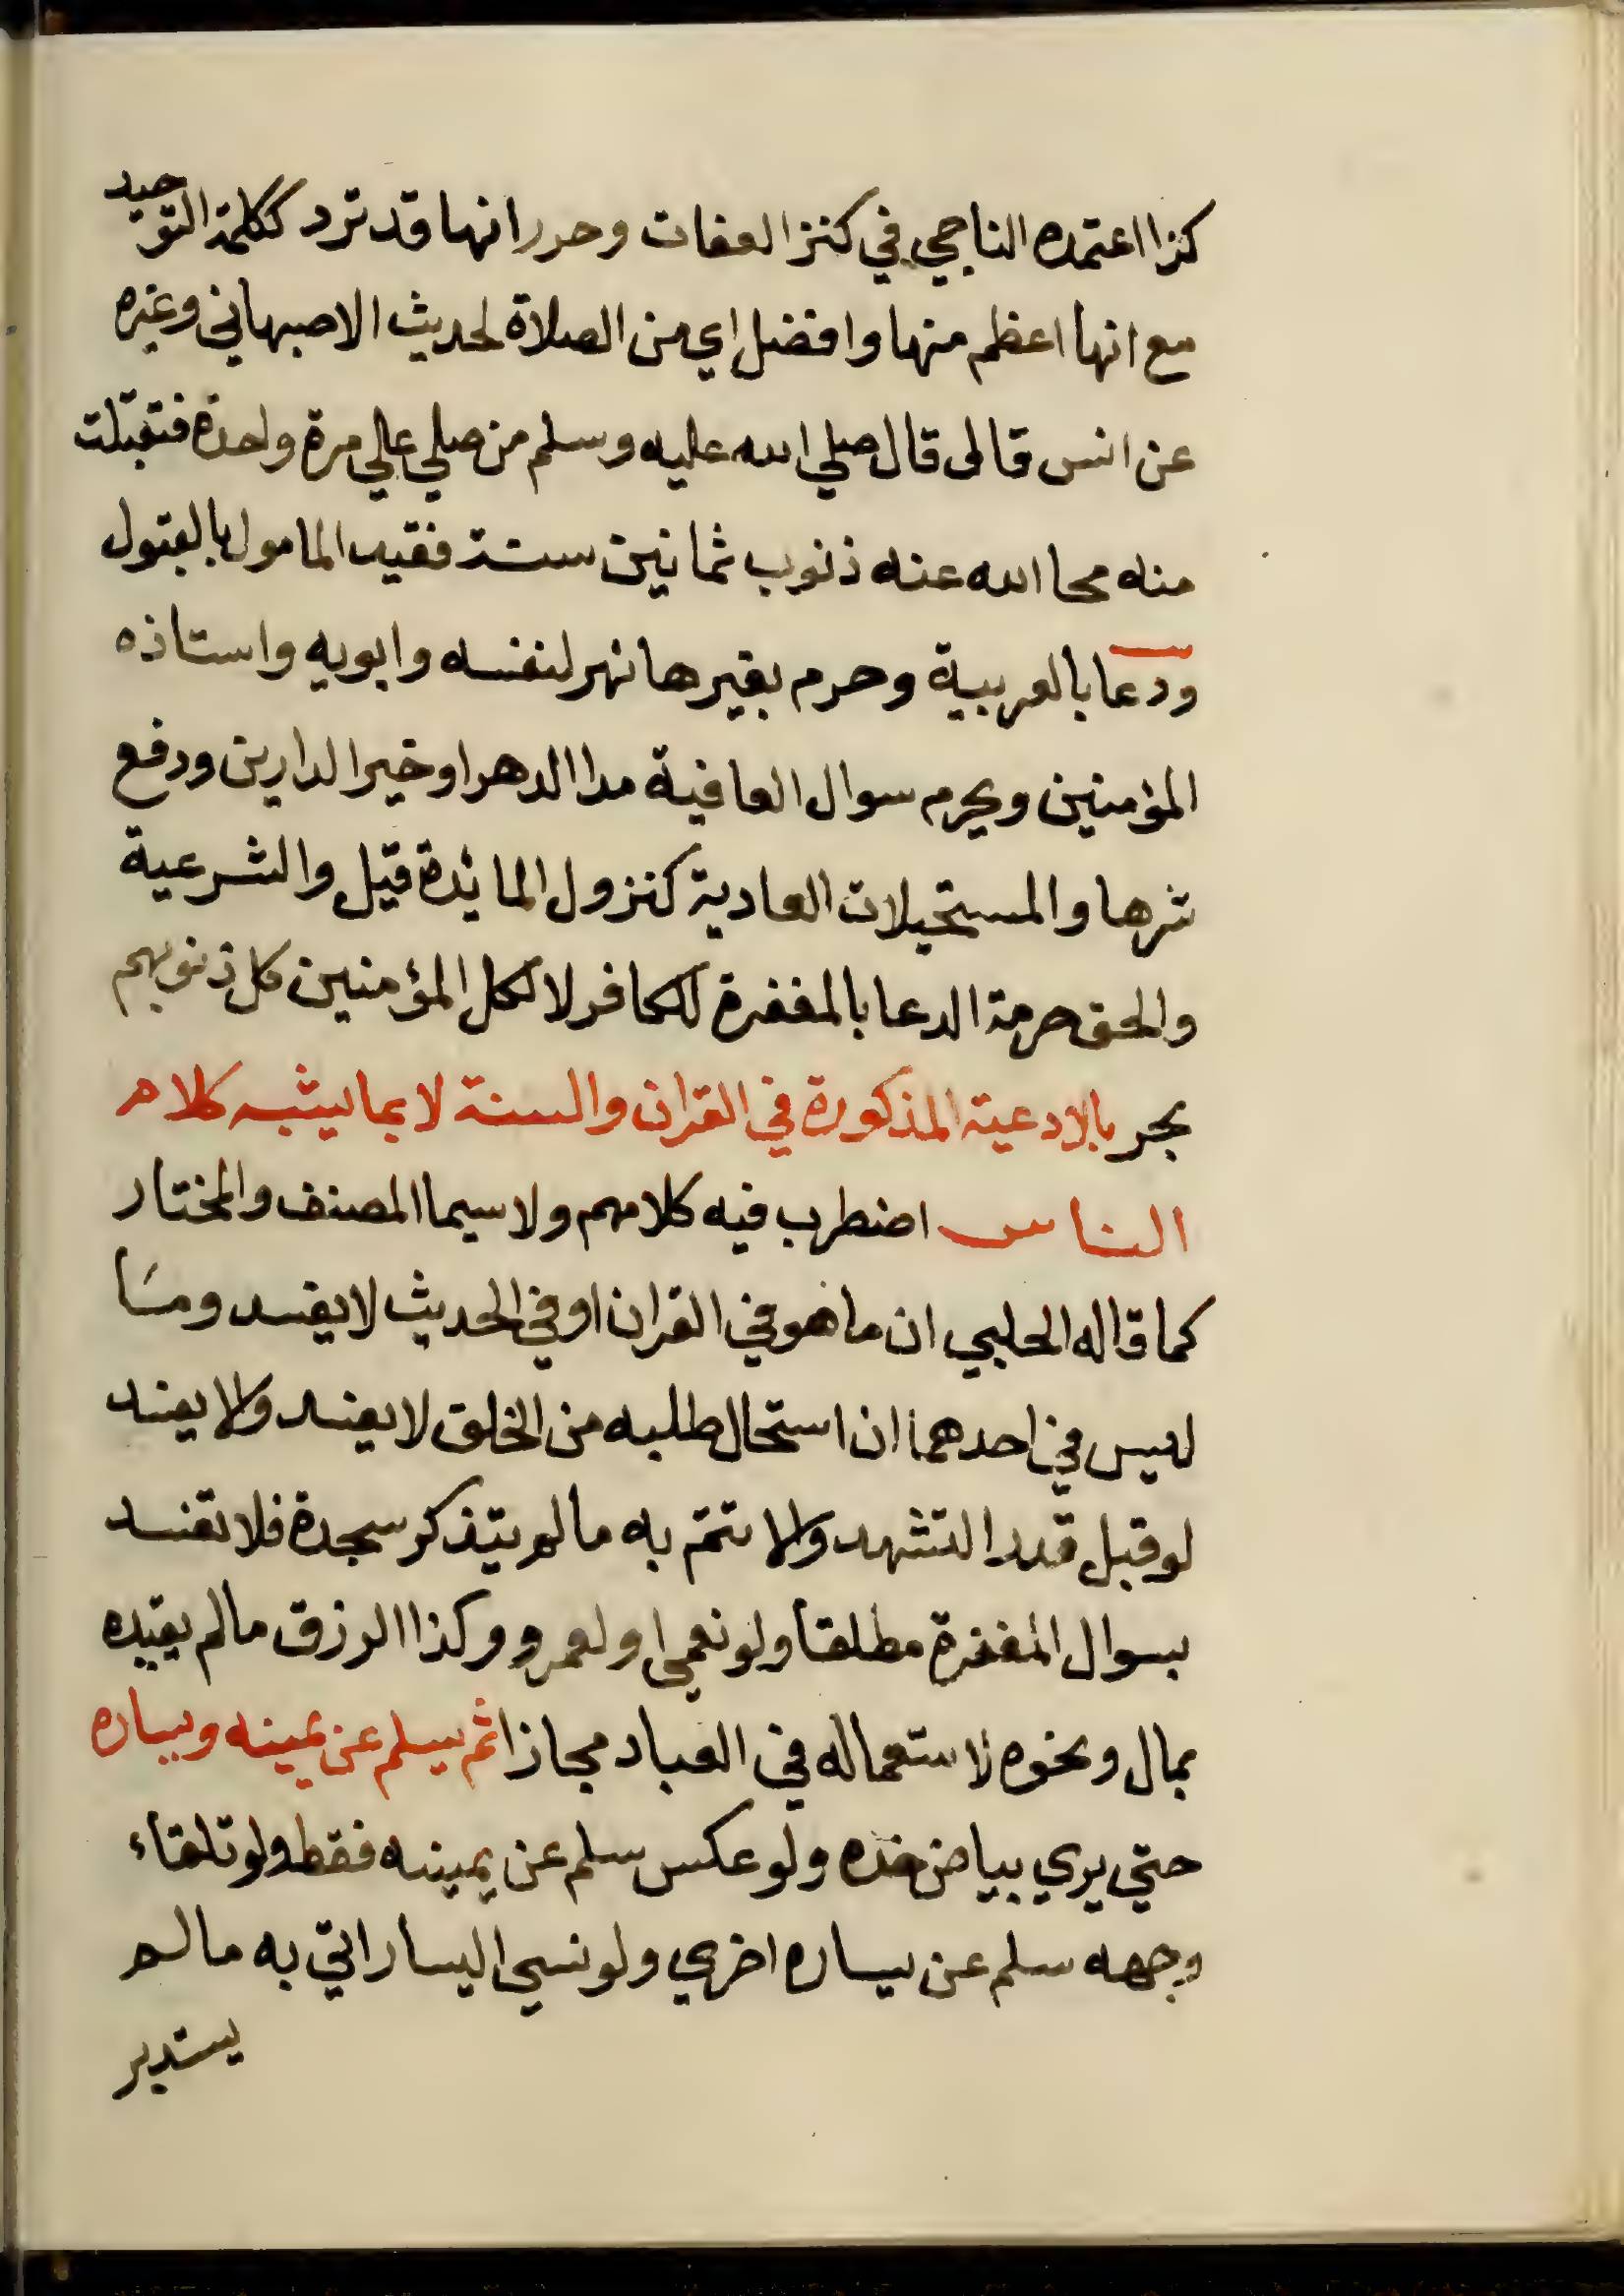 كذا اعتمده الناجي في كنز العفات وحرر انها قد ترد ككلمة التوحيد
مع انها اعظم منها وافضل اي من الصلاة لحديث الاصبهاني وغيره
عن انس قال قال صلي الله عليه وسلم من صلي علي مرة واحدة فتقبلت
منه محا الله عنه ذنوب ثمانين سنة فقيد المامول بالقبول
ودعا بالعربية وحرم بغيرها نهر لنفسه وابويه واستاذه
المؤمنين ويحرم سوال العافية مدا الدهر او خير الدارين ودفع
شرها والمستحيلات العادية كنزول المائدة قيل والشرعية
والحق حرمة الدعا بالمغفرة للكافر لا لكل المؤمنين كل ذنوبهم
بحر بالادعية المذكورة في القران والسنة لا بما يشبه كلام
الناس اضطرب فيه كلامهم ولا سيما المصنف والمختار
كما قاله الحلبي ان ما هو في القران او في الحديث لا يفسد وما
ليس في احدهما ان استحال طلبه من الخلق لا يفسد والا يفسد
لو قبل قدر التشهد والا تتم به ما لم يتذكر سجدة فلا تفسد
بسوال المغفرة مطلقا ولو نعمي او لعمرو وكذا الرزق ما لم يقيده
بمال ونحوه لاستعماله في العباد مجازا ثم يسلم عن يمينه ويساره
حتي يري بياض خده ولو عكس سلم عن يمينه فقط ولو تلقاء
وجهه سلم عن يساره اخري ولو نسي اليسار اتي به ما لم
يستدبر